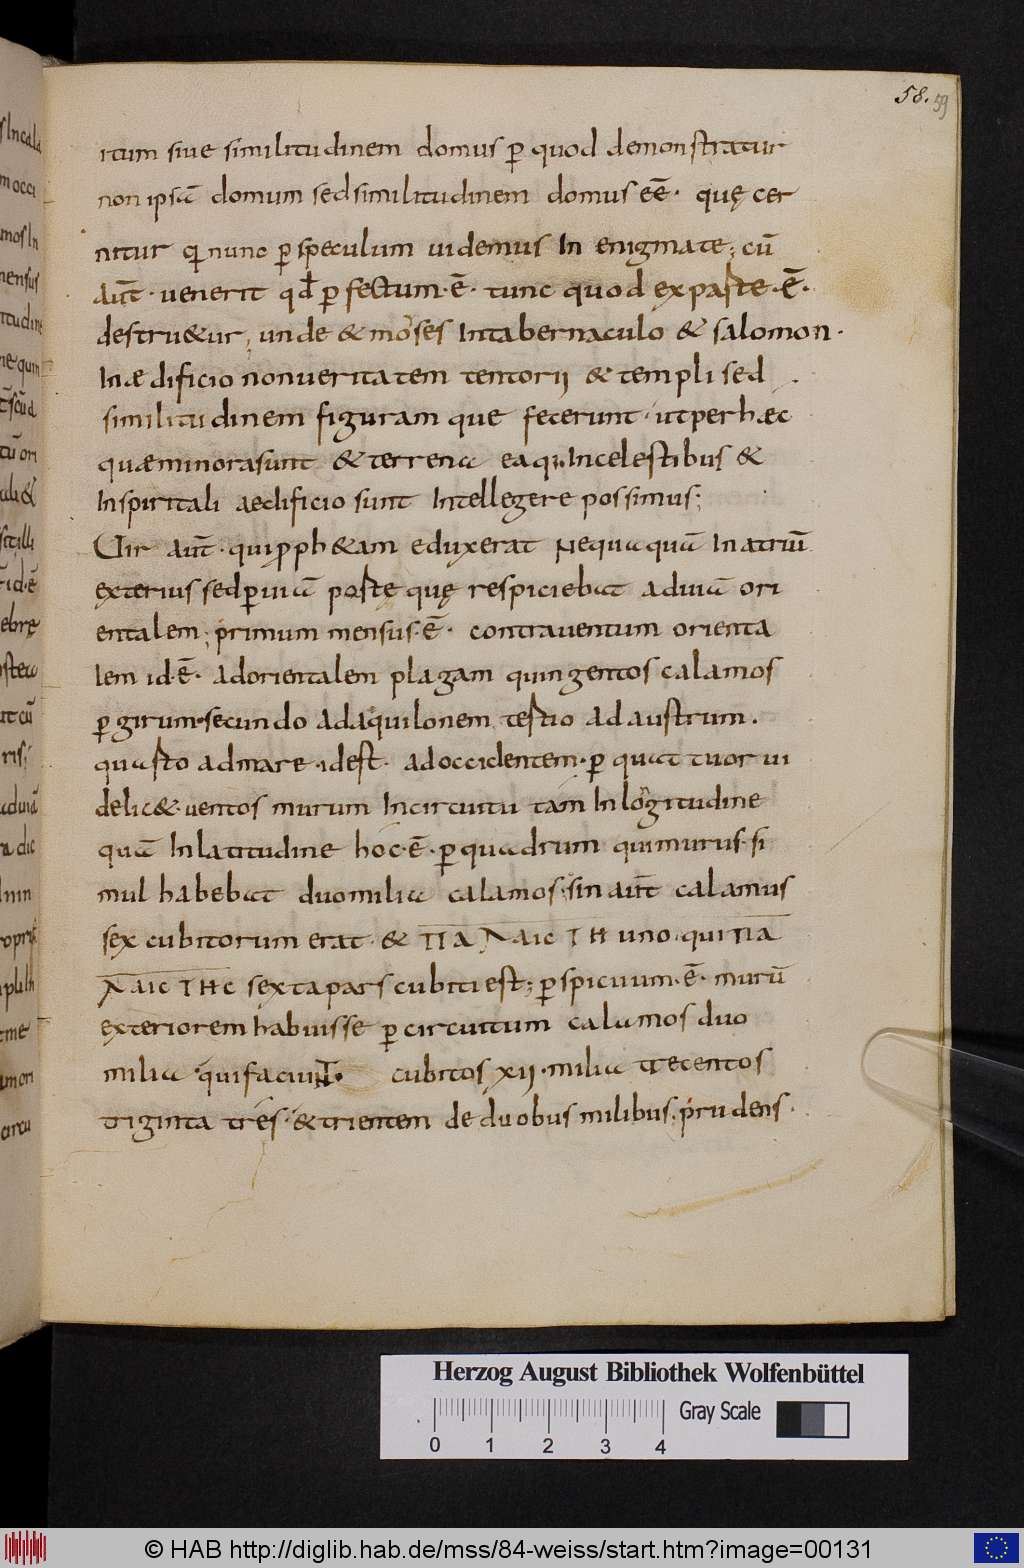 58. 59
itum siue similitudinem domus ꝑ quod demonstratur
non ipsā domum sed similitudinem domus eē· quę cer
nitur qi nunc ꝑ speculum uidemus In enigmate; cū
aūt· uenerit qđ ꝑfectum·ē· tunc quod exparte·ē·
destru&ur; unde & moyses Intabernaculo & salomon·
Inædificio nonueritatem tentorij & templi sed
similitudinem figuram que fecerunt· ut perhæc
quæminorasunt & terrena eaq; Incelestibus &
Inspiritali aedificio sunt Intellegere possimus;
Uir aūt· quiꝓph&am eduxerat Nequaquā Inatriū
exterius sedꝑuiā portę quę respiciebat aduiā ori
entalem; primum mensus·ē· contrauentum orienta
lem id·ē· adorientalem plagam quingentos calamos
ꝑ girum· secundo adaquilonem tertio ad austrum·
quarto admare· idest· adoccidentem· ꝑ quattuor ui
delic&· uentos murum Incircuitu tam Inlongitudine
quā Inlatitudine hoc·ē· ꝑquadrum quimurus· si
mul habebat duomilia calamos; sin aūt calamus
sex cubitorum erat· & ΠΑΛΑΙCΤΗ uno· qui ΠΑ
ΛΑΙCΤΗC sextapars cubiti est; ꝑspicuum·ē· murū
exteriorem habuisse ꝑ circuitum calamos duo
milia· qui faciuNT· cubitos xii· milia trecentos
triginta tres· & trientem de duobus milibus; prudens·
Herzog August Bibliothek Wolfenbüttel
0 1 2 3 4
Gray Scale
© HAB http://diglib.hab.de/mss/84-weiss/start.htm?image=00131